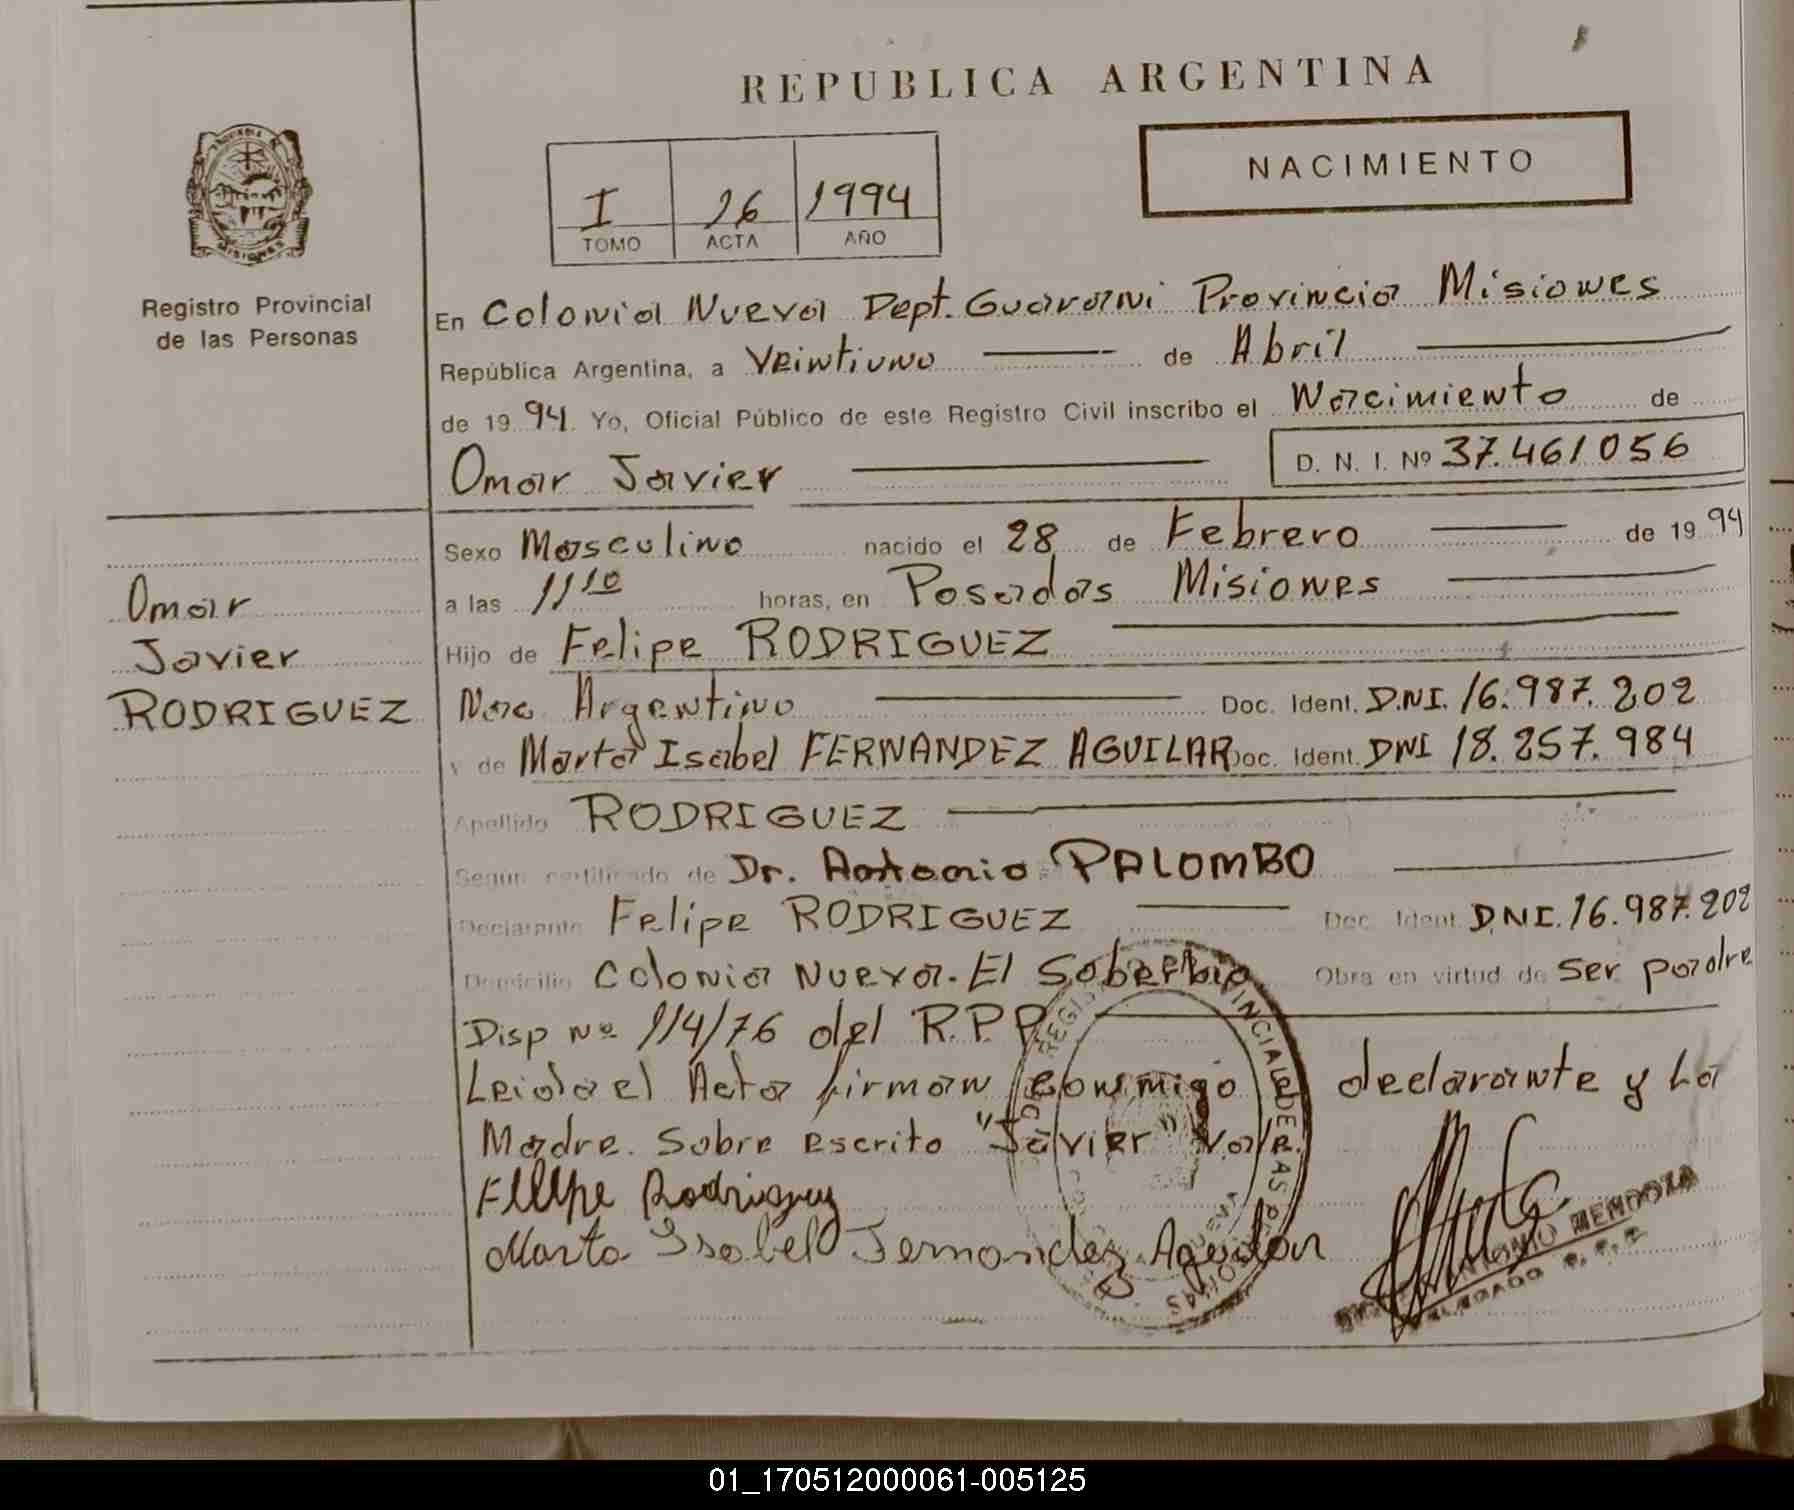 REPUBLICA ARGENTINA
NACIMIENTO
I 16 1994
TOMO ACTA AÑO
MISIONES
Registro Provincial
de las Personas
En Colonia Nueva Dept. Guarani Provincia Misiones
República Argentina, a Veintiuno de Abril
de 19 94. Yo, Oficial Público de este Registro Civil inscribo el Nacimiento de
Omar Javier D. N. I. Nº 37.461056
Sexo Masculino nacido el 28 de Febrero de 19 94
a las 11 10 horas, en Posadas Misiones
Hijo de Felipe RODRIGUEZ
Nac Argentino Doc. Ident. D.N.I. 16.987.202
y de Marta Isabel FERNANDEZ AGUILAR Doc. Ident. DNI 18.257.984
Apellido RODRIGUEZ
Según certificado de Dr. Antonio PALOMBO
Declarante Felipe RODRIGUEZ Doc. Ident. DNI. 16.987.202
Domicilio Colonia Nueva. El Soberbio Obra en virtud de ser padre
Disp Nº 114/76 del R.P.P.
Leida el Acta firman conmigo declarante y La
Madre. Sobre escrito "Javier" Vale.
Felipe Rodriguez
Marta Isabel Fernandez Aguilar
Omar
Javier
RODRIGUEZ
ANTONIO MENDOZA
DELEGADO
01_170512000061-005125